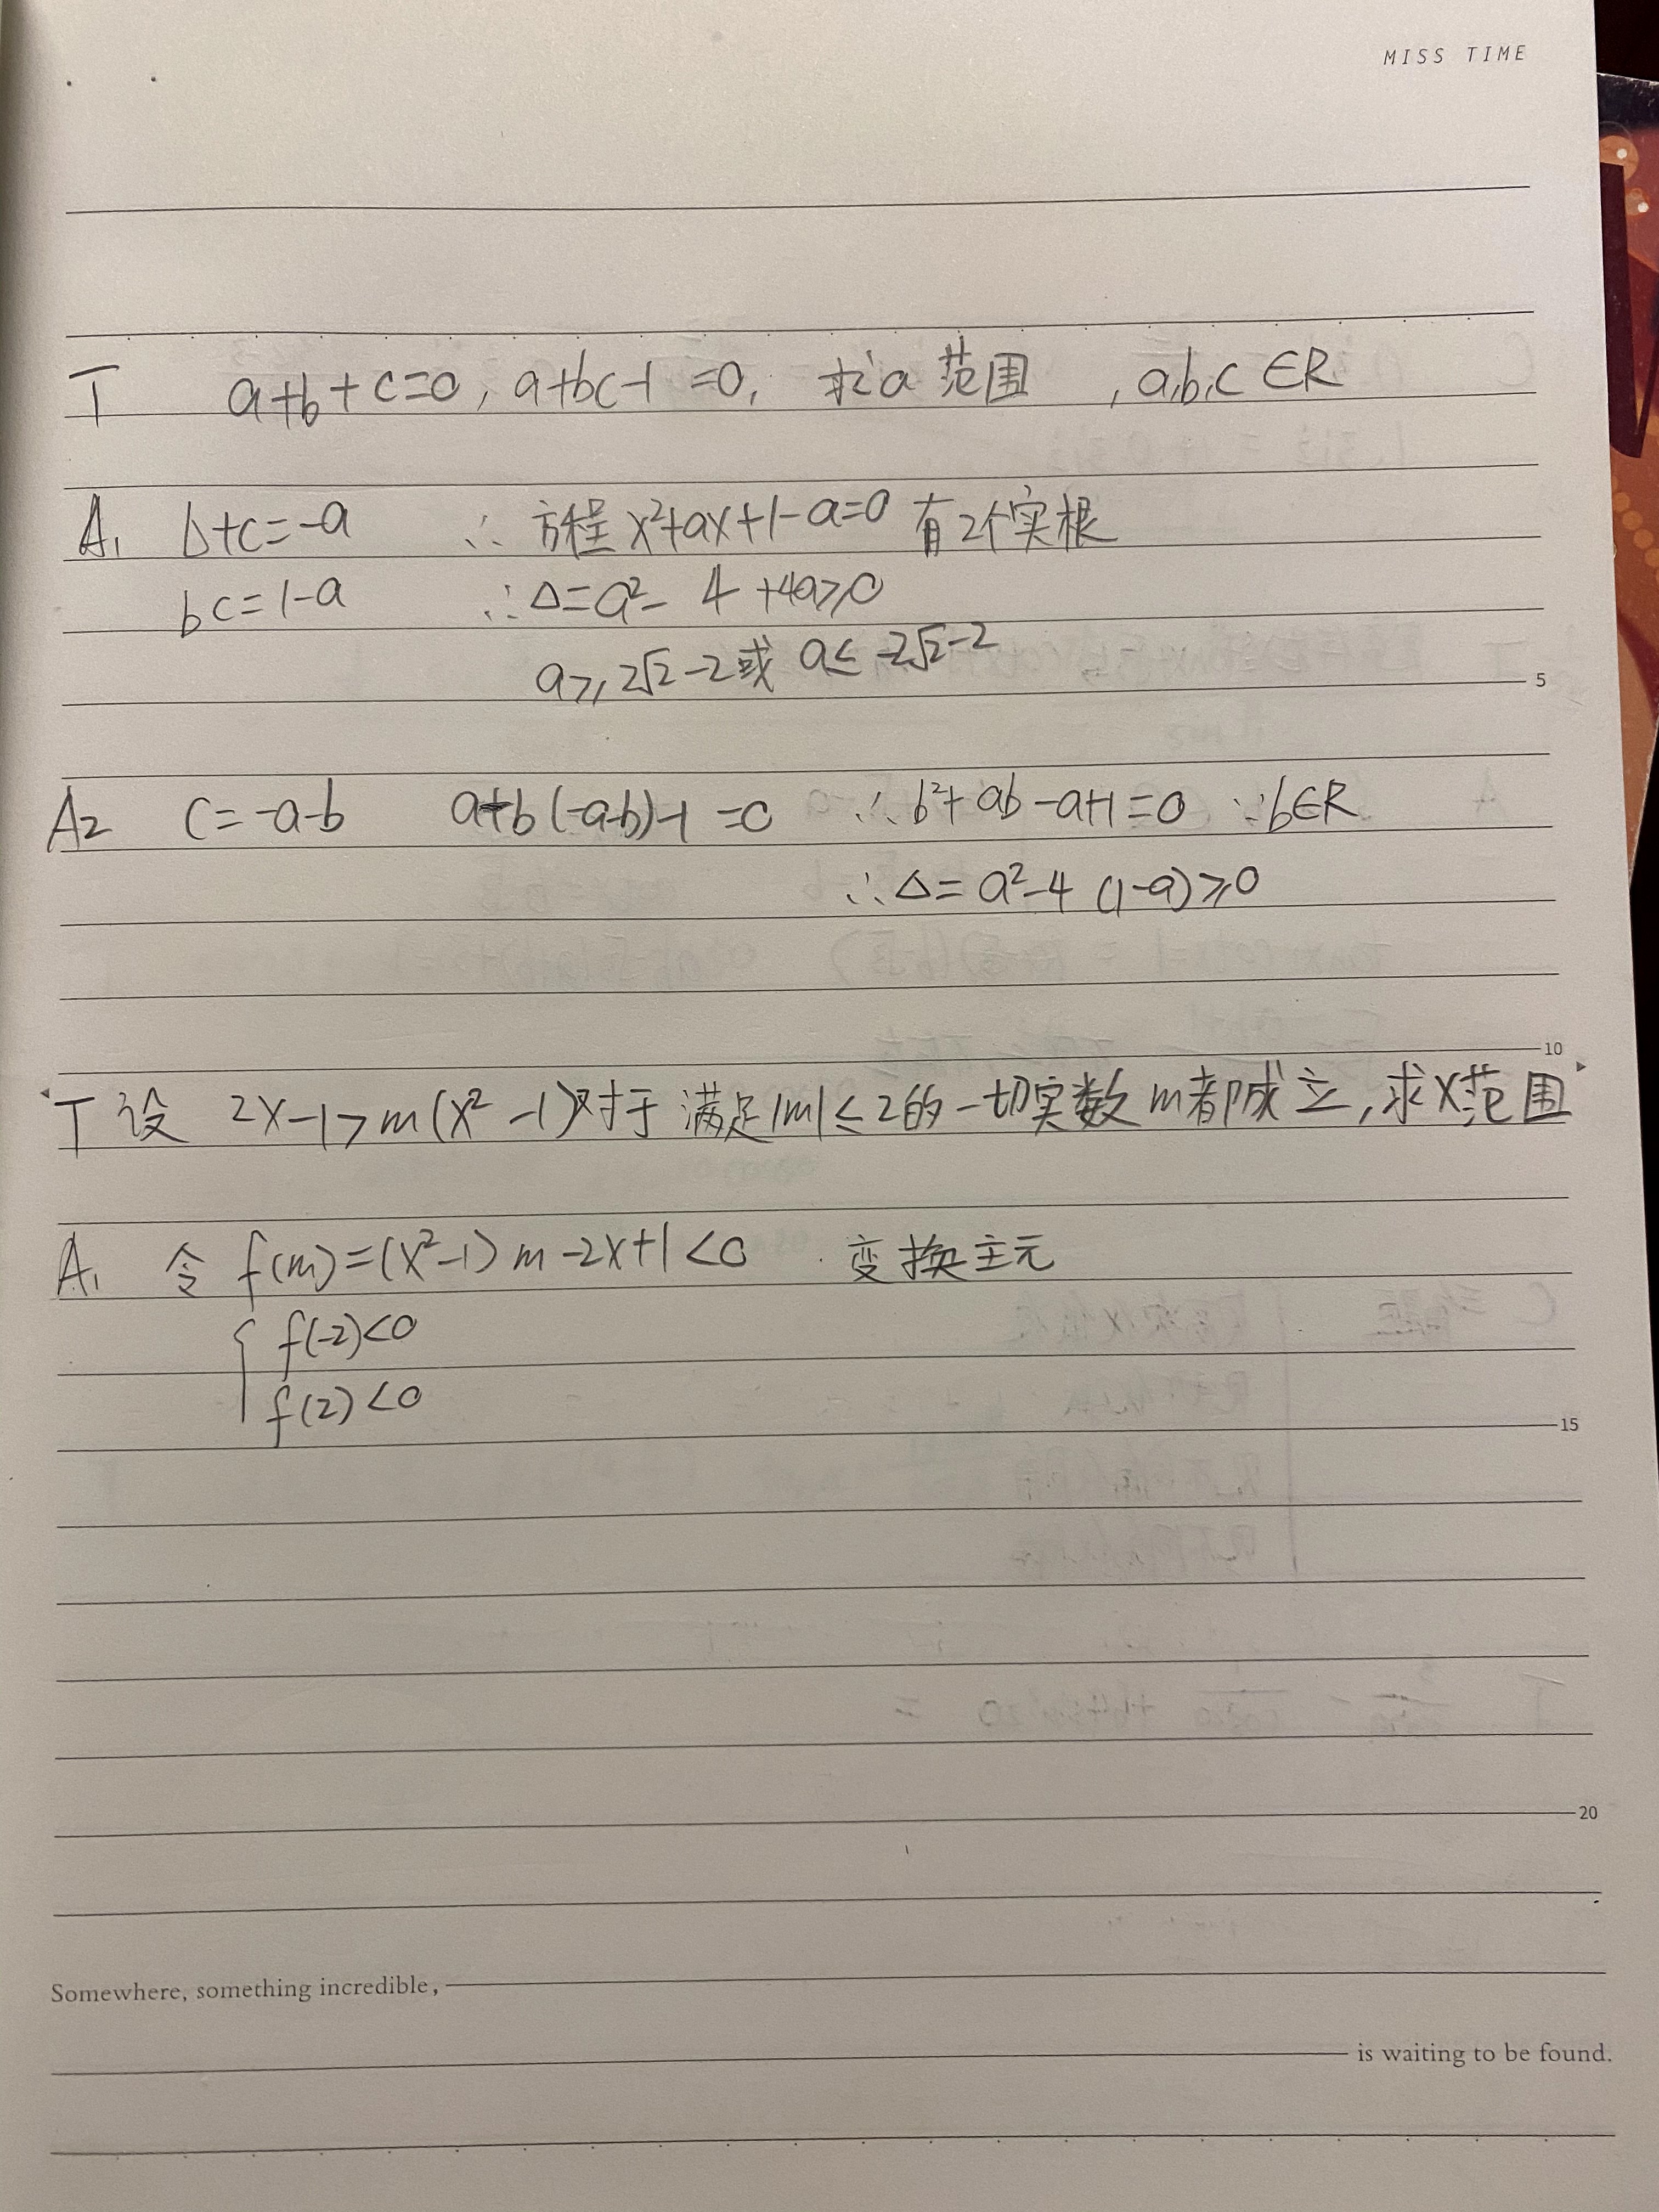 MISS TIME
T a+b+c=0, a+bc-1=0, 求a范围, a,b,c∈R
A₁ b+c=-a ∴方程x²+ax+1-a=0有2个实根
bc=1-a ∴Δ=a²-4+4a≥0
a≥2√2-2或a≤-2√2-2
5
A₂ c=-a-b a+b(-a-b)-1=0 ∴b²+ab-a+1=0 ∵b∈R
∴Δ=a²-4(1-a)≥0
10
T 设 2x-1>m(x²-1)对于满足|m|≤2的一切实数m都成立,求x范围
A₁ 令f(m)=(x²-1)m-2x+1<0. 变换主元
{ f(-2)<0
f(2)<0
15
20
Somewhere, something incredible,
is waiting to be found.